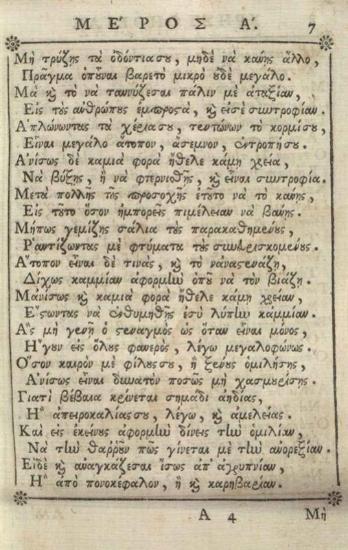 ΜΕ'ΡΟΣ Α'. 7
Μὴ τρύζῃς τὰ ὀδόντιασυ, μηδὲ νὰ κάνῃς ἄλλο,
Πρᾶγμα ὁποῦναι βαρετὸ μικρὸ ȣ̓δὲ μεγάλο.
Μὰ κ̀ τὸ νὰ ταννύζεσαι πάλιν μὲ ἀταξίαν,
Εἰς τȣ̀ς ἀνθρώπȣς ἐμπροσὰ, κ̀ εἰσὲ συντροφίαν.
Α'πλώνωντας τὰ χέριασȣ, τεντώνων τὸ κορμίσȣ,
Εἶναι μεγάλο ἄτοπον, ἄσεμνον, ἐντροπήσȣ.
Α'νίσως δὲ καμία φορὰ ἤθελε κάμῃ χρεία,
Νὰ βύζῃς, ἢ νὰ φτερνισθῇς, κ̀ εἶναι συντροφία.
Μετὰ πολλῆς τῆς προσοχῆς ἐτȣ͂το νὰ τὸ κάνῃς,
Εἰς τȣ͂το ὅσον ἠμπορεῖς πιμέλειαν νὰ βάνῃς.
Μήπως γεμίζῃς σάλια τȣ̀ς παρακαθημένȣς,
Ρ'αντίζωντας μὲ φτύματα τȣ̀ς συνευρισκομένȣς.
Α"τοπον εἶναι δέ τινὰς, κ̀ τὸ νἀναστενάζῃ,
Δίχως καμμίαν ἀφορμὴν ὁπȣ͂ νὰ τὸν βιάζῃ.
Μἀνίσως κ̀ καμία φορὰ ἤθελε κάμῃ χρείαν,
Ε"ξωντας νὰ ἐνθυμηθῇς ἐσὺ λύπην καμμίαν.
Α"ς μὴ γενῇ ὁ στεναγμὸς ὡς ὅταν εἶναι μόνος,
Η"γȣν εἰς ὅλȣς φανερὸς, λέγω μεγαλοφώνως.
Ο"σον καιρὸν μὲ φίλȣςσȣ, ἢ ξένȣς ὁμιλήσῃς,
Α'νίσως εἶναι δυνατὸν ποσῶς μὴ χασμȣρίσῃς.
Γιατὶ βέβαια κρίνεται σημάδι ἀηδίας,
Η" ἀπειροκαλίαςσȣ, λέγω, κ̀ ἀμελείας.
Καὶ εἰς ἐκείνȣς ἀφορμὴν δίνεις τὴν ὁμιλίαν,
Νὰ τὴν θαρρȣ͂ν πῶς γίνεται μὲ τὴν ἀνορεξίαν.
Εἰδὲ κ̀ ἀναγκάζεσαι ἴσως ἀπ' ἀγρυπνίαν,
Η" ἀπὸ πονοκέφαλον, ἢ κ̀ καρηβαρίαν.
A 4 Μὴ